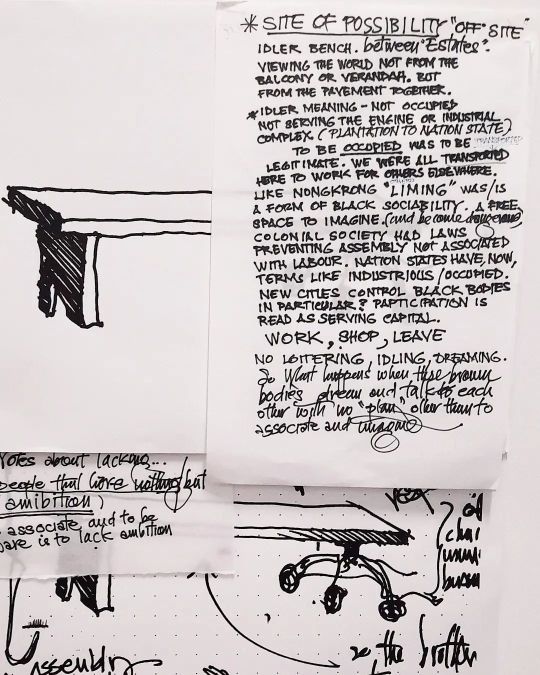 * SITE OF POSSIBILITY "OFF-SITE"
IDLER BENCH. between "Estates".
VIEWING THE WORLD NOT FROM THE
BALCONY OR VERANDAH. BUT
FROM THE PAVEMENT TOGETHER.
* IDLER MEANING - NOT OCCUPIED
NOT SERVING THE ENGINE OR INDUSTRIAL
COMPLEX. (PLANTATION TO NATION STATE)
TO BE OCCUPIED WAS TO BE
LEGITIMATE. WE WERE ALL TRANSPORTED
HERE TO WORK FOR OTHERS ELSEWHERE.
LIKE NONGKRONG "LIMING" WAS/IS
A FORM OF BLACK SOCIABILITY. A FREE
SPACE TO IMAGINE. (and become dangerous)
COLONIAL SOCIETY HAD LAWS
PREVENTING ASSEMBLY NOT ASSOCIATED
WITH LABOUR. NATION STATES HAVE, NOW,
TERMS LIKE INDUSTRIOUS/OCCUPIED.
NEW CITIES CONTROL BLACK BODIES
IN PARTICULAR? PARTICIPATION IS
READ AS SERVING CAPITAL.
WORK, SHOP, LEAVE
NO LOITERING, IDLING, DREAMING.
So What happens when these brown
bodies dream and talk to each
other with no "plan" other than to
associate and imagine
Notes about lacking...
people that have nothing but
ambition)
associate and to be
is to lack ambition
Assembly
the broken